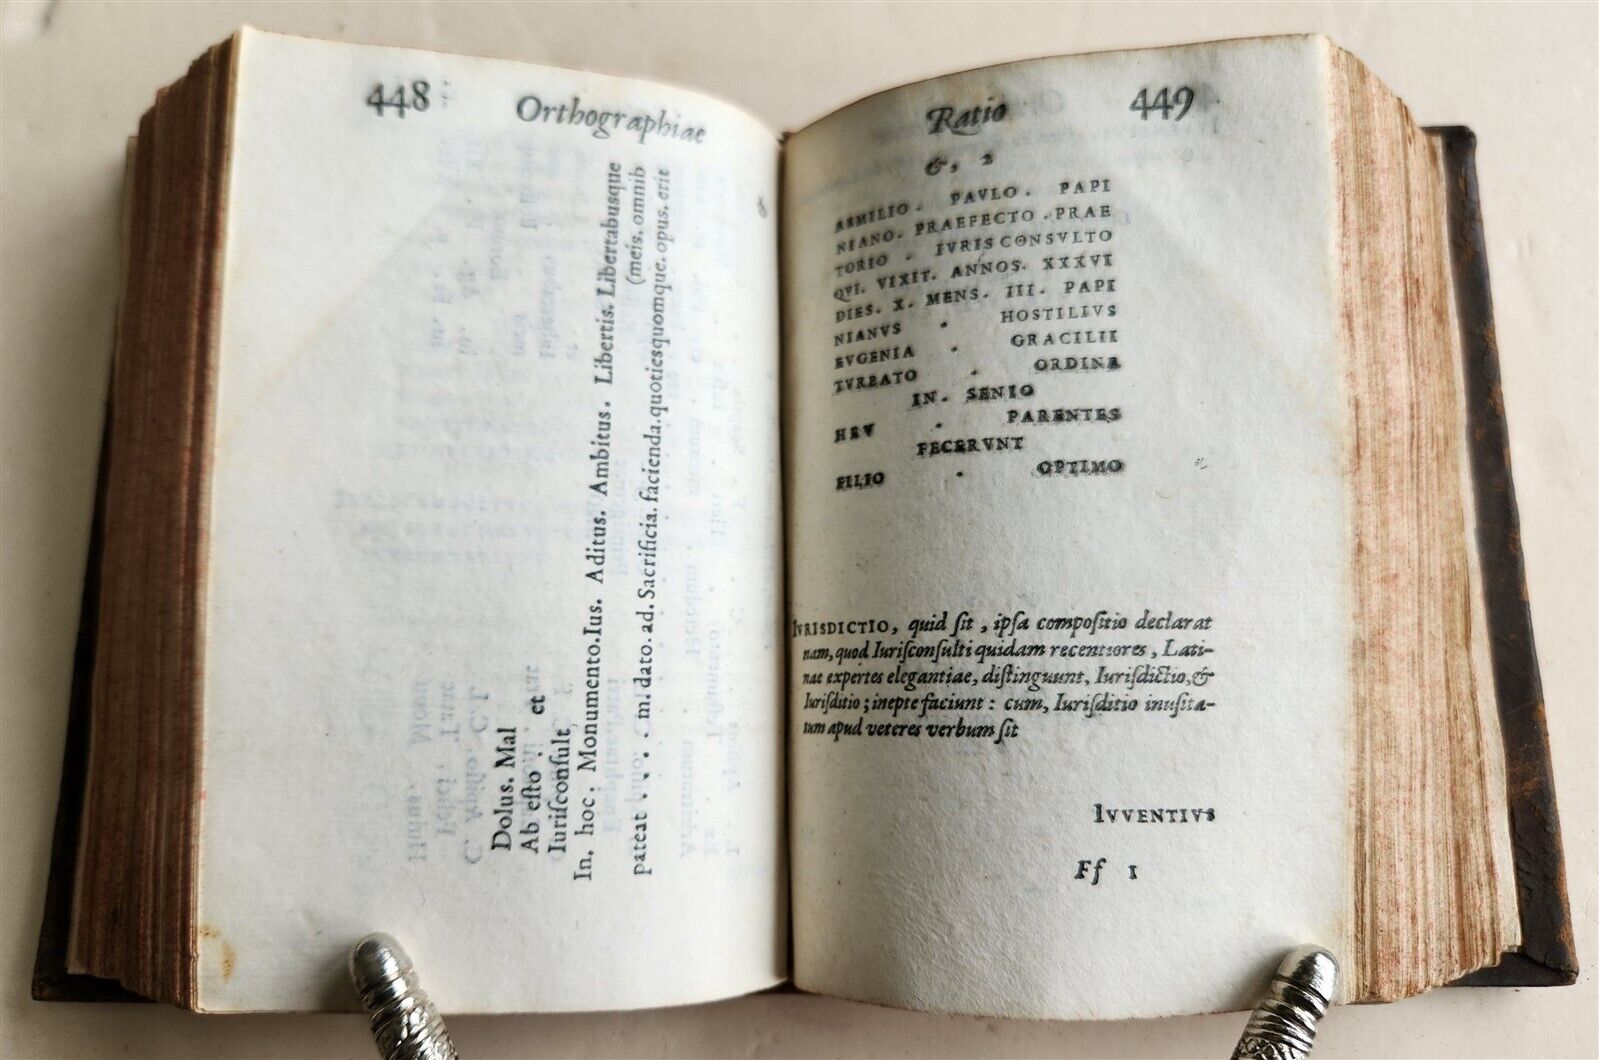 448 Orthographiae
Dolus. Mal
Ab eſto :: et
Iuriſconſult
In. hoc. Monumento. Ius. Aditus. Ambitus. Libertis. Libertabusque
(meis. omnib
pateat . . . . m. dato. ad. Sacrificia. facienda. quotiesquomque. opus. erit
Ratio 449
&, 2
AEMILIO . PAVLO . PAPI
NIANO. PRAEFECTO . PRAE
TORIO . IVRISCONSVLTO
QVI. VIXIT. ANNOS. XXXVI
DIES. X. MENS. III. PAPI
NIANVS . HOSTILIVS
EVGENIA . GRACILII
TVRBATO . ORDINE
IN. SENIO
HEV . PARENTES
FECERVNT
FILIO . OPTIMO
IVRISDICTIO, quid ſit, ipſa compoſitio declarat
nam, quod Iuriſconſulti quidam recentiores, Lati-
nae expertes elegantiae, diſtinguunt, Iuriſdictio, &
Iuriſditio; inepte faciunt: cum, Iuriſditio inuſita-
tum apud veteres verbum ſit
IVVENTIVS
Ff 1